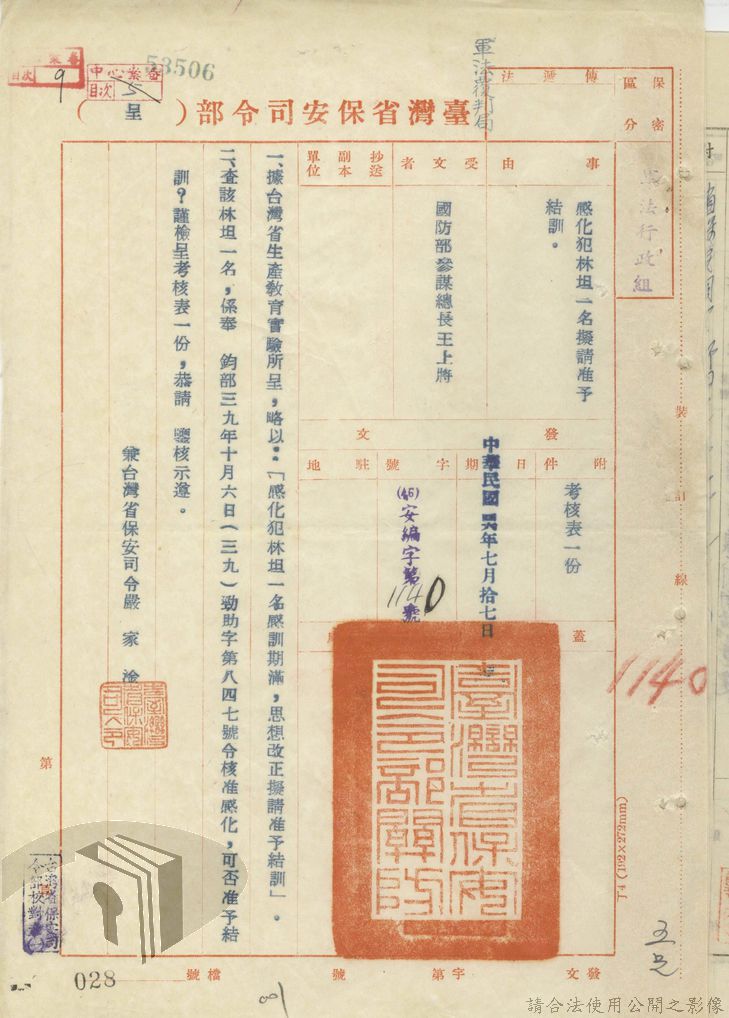 53506
目次 9
中心案卷
目次 5
軍法覆判局
臺灣省保安司令部（呈）
保密區分
傳遞法
軍法行政組
事由
感化犯林坦一名擬請准予
結訓。
受文者
國防部參謀總長王上將
抄送副本單位
發文
附件
考核表一份
日期
中華民國四六年七月拾七日
字號
(46)安編字第1140號
駐地
蓋
裝訂線
1140
一、據台灣省生產教育實驗所呈，略以：「感化犯林坦一名感訓期滿，思想改正擬請准予結訓」。
二、查該林坦一名，係奉　鈞部三九年十月六日（三九）勁助字第八四七號令核准感化，可否准予結
訓？謹檢呈考核表一份，恭請　鑒核示遵。
兼台灣省保安司令嚴家淦
臺灣省保安司令部關防
第
台灣省保安司
令部校對章
(192×272mm)
028
檔號
發文　字第　號
請合法使用公開之影像